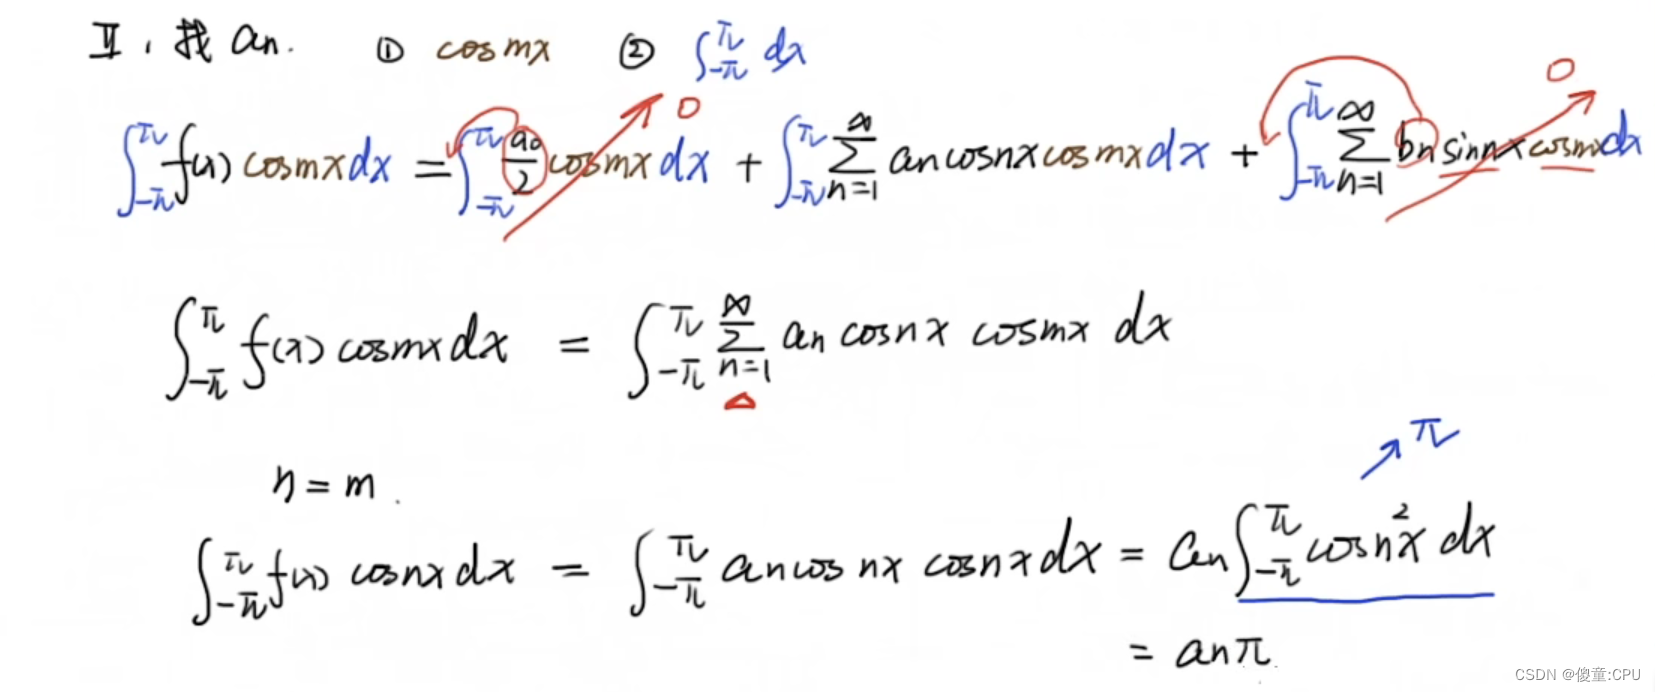 Ⅱ、找 an. ① cosmx ② ∫_{-π}^{π} dx
∫_{-π}^{π} f(x) cosmx dx = ∫_{-π}^{π} a₀/2 cosmx dx + ∫_{-π}^{π} ∑_{n=1}^{∞} an cosnx cosmx dx + ∫_{-π}^{π} ∑_{n=1}^{∞} bn sinnx cosmx dx
0 0
∫_{-π}^{π} f(x) cosmx dx = ∫_{-π}^{π} ∑_{n=1}^{∞} an cosnx cosmx dx
π
n = m .
∫_{-π}^{π} f(x) cosnx dx = ∫_{-π}^{π} an cos nx cosnx dx = an ∫_{-π}^{π} cos n²x dx
= anπ.
CSDN @傻童:CPU